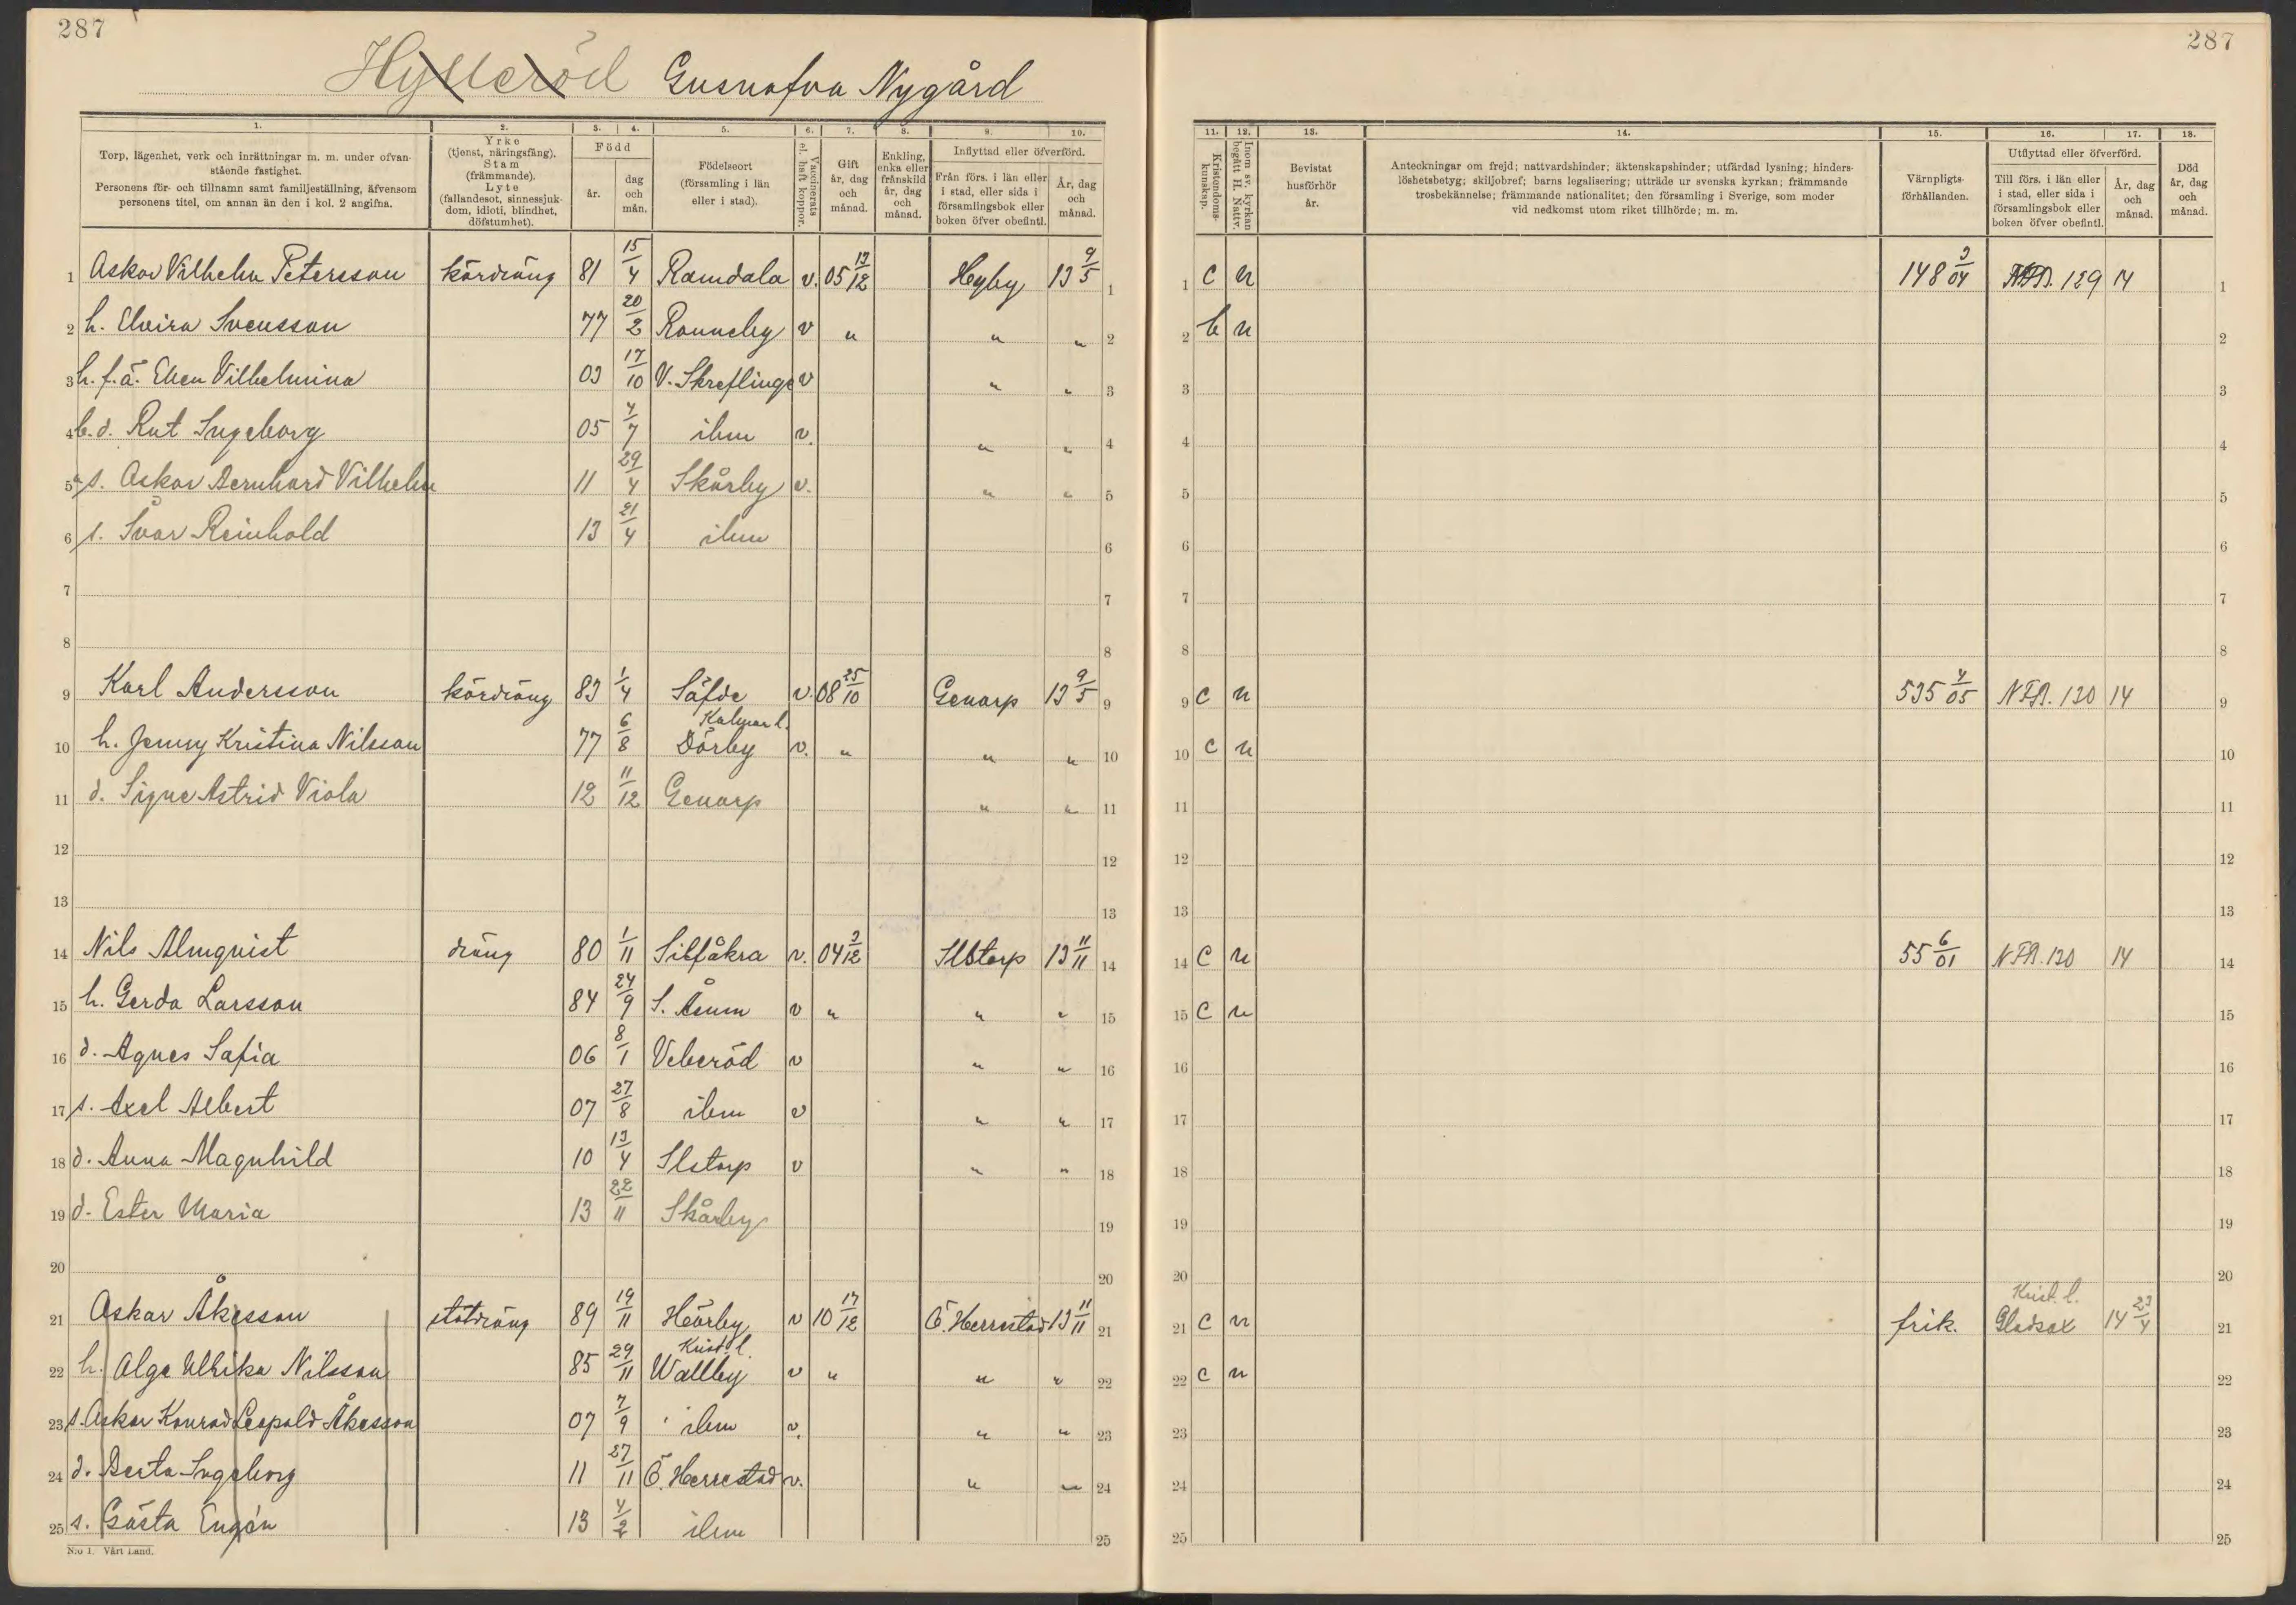 287
287
Hylleröd Gusnafva Nygård
1. 2. 3. 4. 5. 6. 7. 8. 9. 10.
11. 12. 13. 14. 15. 16. 17. 18.
Torp, lägenhet, verk och inrättningar m. m. under ofvanstående fastighet.
Personens för- och tillnamn samt familjeställning, äfvensom personens titel, om annan än den i kol. 2 angifna.
Yrke (tjenst, näringsfång). Stam (främmande). Lyte (fallandesot, sinnessjukdom, idioti, blindhet, döfstumhet).
Född
år. dag och mån.
Födelseort (församling i län eller i stad).
Vaccinerats el. haft koppor.
Gift år, dag och månad.
Enkling, enka eller frånskild år, dag och månad.
Inflyttad eller öfverförd.
Från förs. i län eller i stad, eller sida i församlingsbok eller boken öfver obefintl.
År, dag och månad.
Kristendomskunskap.
Inom sv. kyrkan begått H. Nattv.
Bevistat husförhör år.
Anteckningar om frejd; nattvardshinder; äktenskapshinder; utfärdad lysning; hinderslöshetsbetyg; skiljobref; barns legalisering; utträde ur svenska kyrkan; främmande trosbekännelse; främmande nationalitet; den församling i Sverige, som moder vid nedkomst utom riket tillhörde; m. m.
Värnpligtsförhållanden.
Utflyttad eller öfverförd.
Till förs. i län eller i stad, eller sida i församlingsbok eller boken öfver obefintl.
År, dag och månad.
Död år, dag och månad.
1 Oskar Vilhelm Petersson kördräng 81 15/4 Ramdala v. 05 13/12 Hyby 13 9/5 1 1 c n 148 3/04 NFB. 129 14 1
2 h. Elvira Svensson 77 20/2 Ronneby v " " " 2 2 b n 2
3 h. f. ä. Ellen Vilhelmina 03 17/10 V. Skreflinge v " " 3 3 3
4 b. d. Rut Ingeborg 05 4/7 ibm v. " " 4 4 4
5 s. Oskar Bernhard Vilhelm 11 29/4 Skårby v. " " 5 5 5
6 s. Ivar Reinhold 13 21/4 ibm 6 6 6
7 7 7 7
8 8 8 8
9 Karl Andersson kördräng 83 1/4 Säfde v. 08 25/10 Genarp 13 9/5 9 9 c n 535 4/05 NFB. 130 14 9
Kalmar l.
10 h. Jenny Kristina Nilsson 77 6/8 Dörby v. " " " 10 10 c n 10
11 d. Signe Astrid Viola 12 11/12 Genarp " " 11 11 11
12 12 12 12
13 13 13 13
14 Nils Almqvist dräng 80 1/11 Silfåkra v. 04 3/12 Ilstorp 13 11/11 14 14 c n 55 6/01 NFB. 130 14 14
15 h. Gerda Larsson 84 24/9 S. Åsum v " " " 15 15 c n 15
16 d. Agnes Sofia 06 8/1 Veberöd v " " 16 16 16
17 s. Axel Albert 07 27/8 ibm v " " 17 17 17
18 d. Anna Magnhild 10 13/4 Ilstorp v " " 18 18 18
19 d. Ester Maria 13 22/11 Skårby 19 19 19
20 20 20 20
Krist. l.
21 Oskar Åkesson statdräng 89 19/11 Hörby v 10 17/12 Ö. Herrestad 13 11/11 21 21 c n frik. Gladsax 14 23/4 21
Krist. l.
22 h. Olga Ulrika Nilsson 85 29/11 Wallby v " " " 22 22 c n 22
23 s. Oskar Konrad Leopold Åkesson 07 7/9 ibm v. " " 23 23 23
24 d. Berta Ingeborg 11 27/11 Ö. Herrestad v. " " 24 24 24
25 s. Gösta Eugén 13 4/2 ibm 25 25 25
N:o 1. Vårt Land.